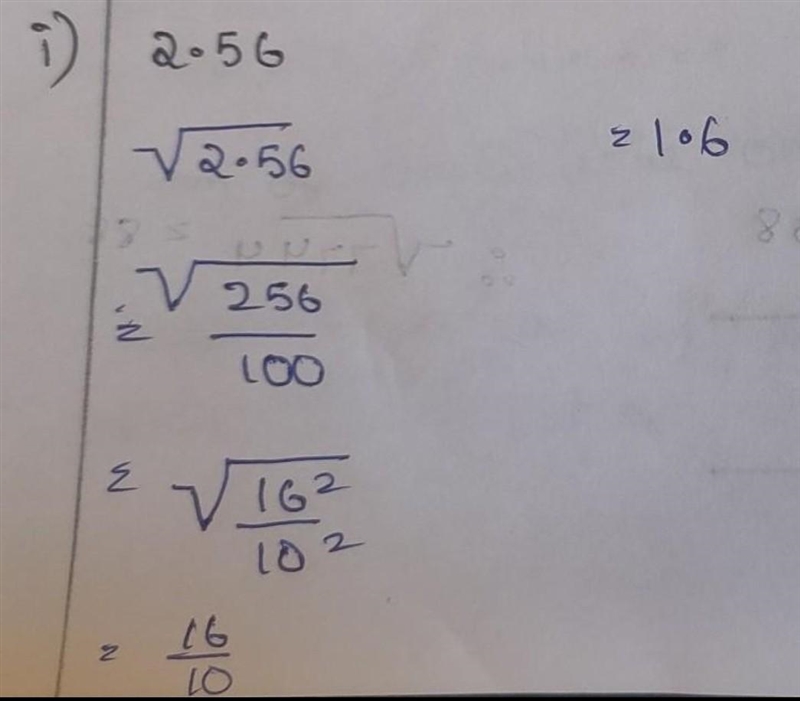 i) 2.56
√2.56
= √256/100
= √16²/10²
= 16/10
= 1.6